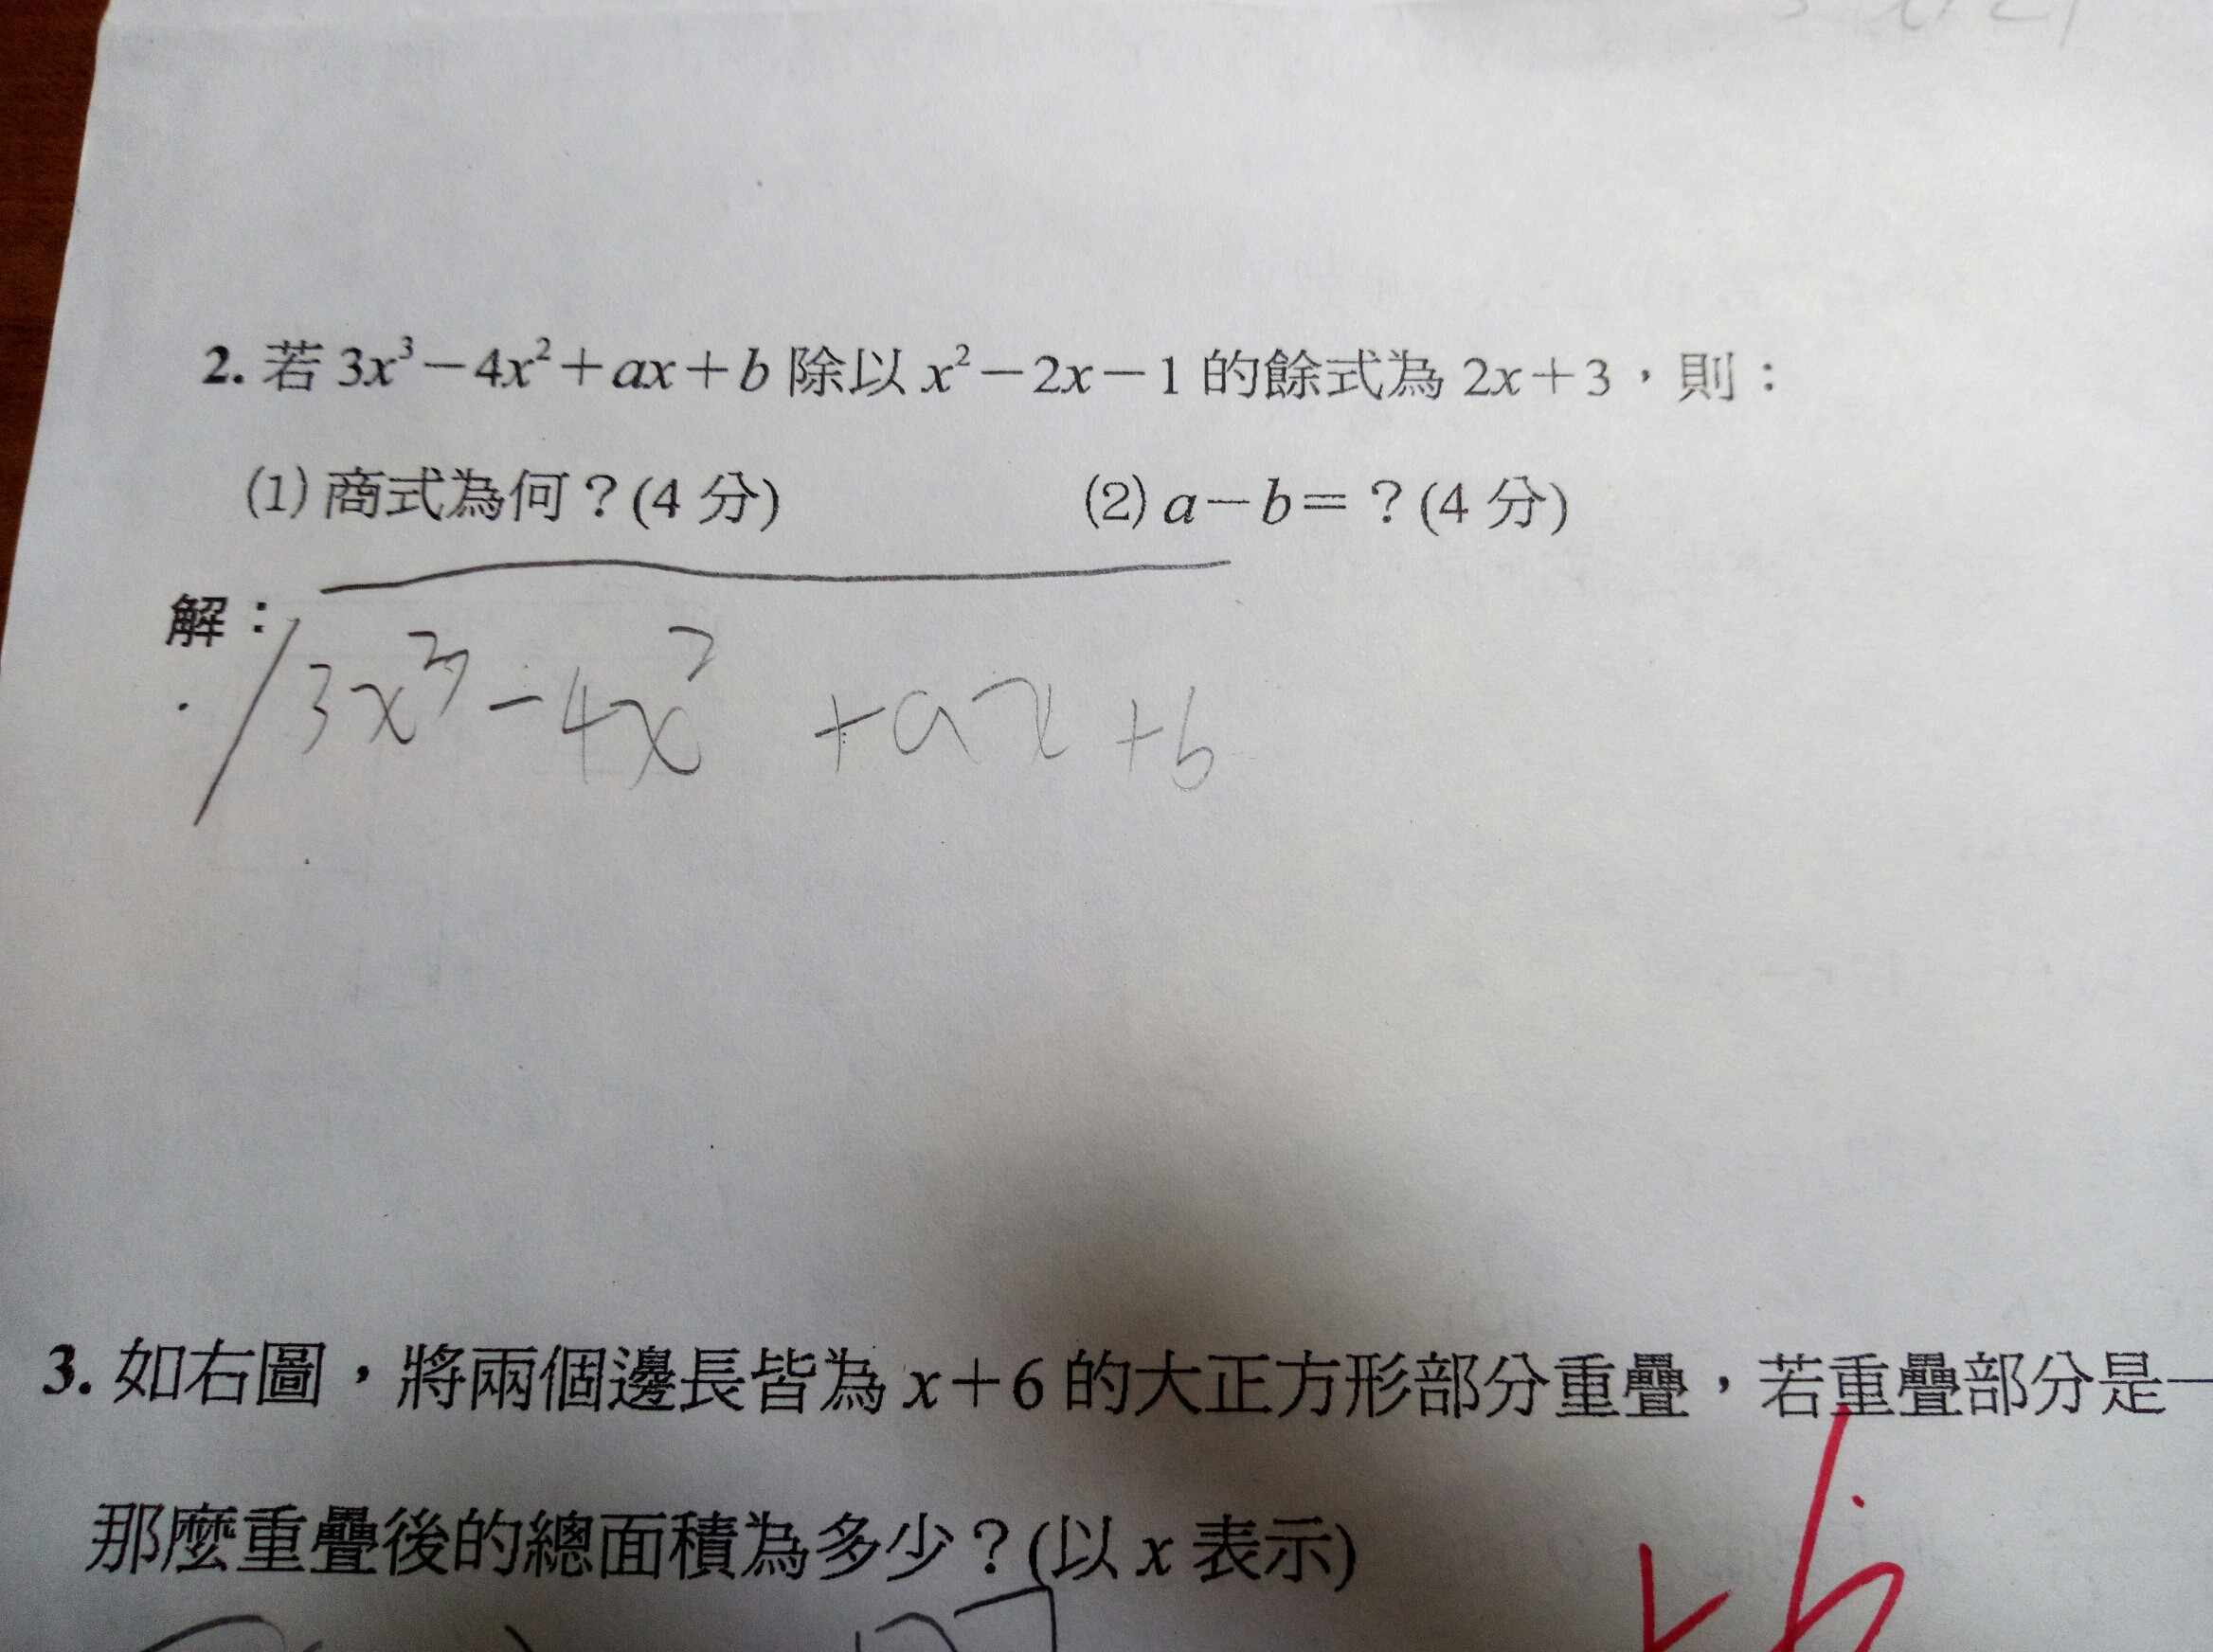 2. 若 3x³－4x²＋ax＋b 除以 x²－2x－1 的餘式為 2x＋3，則：
(1) 商式為何？(4 分) (2) a－b＝？(4 分)
解：
3x³－4x²＋ax＋b
3. 如右圖，將兩個邊長皆為 x＋6 的大正方形部分重疊，若重疊部分是一
那麼重疊後的總面積為多少？(以 x 表示)